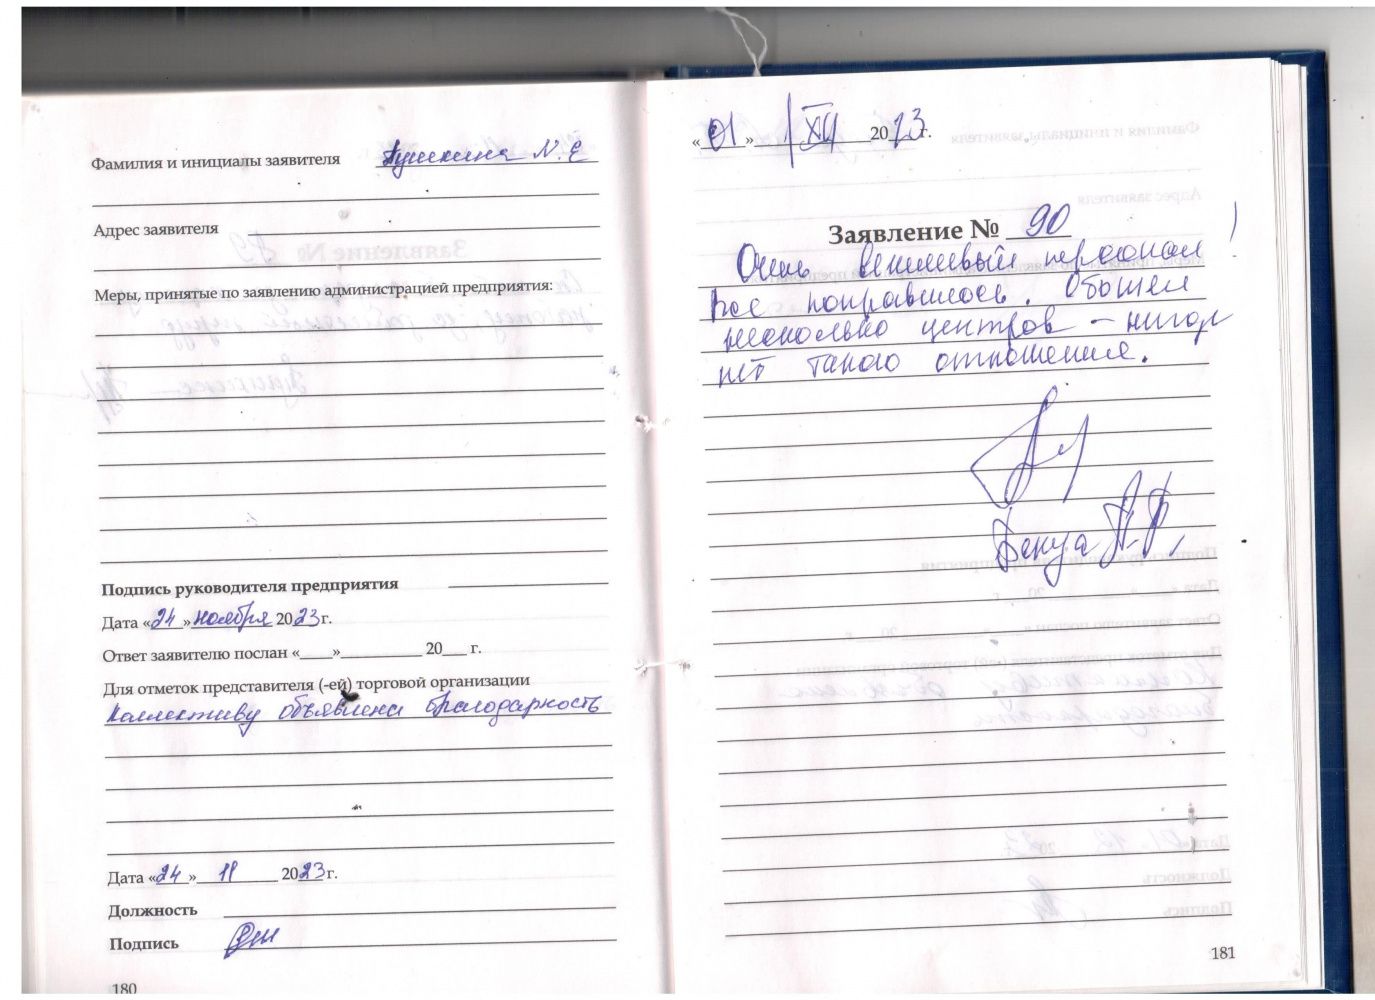 Фамилия и инициалы заявителя Пушкина N. E
Адрес заявителя
Меры, принятые по заявлению администрацией предприятия:
Подпись руководителя предприятия
Дата «24» ноября 2023 г.
Ответ заявителю послан «____»__________ 20___ г.
Для отметок представителя (-ей) торговой организации
Коллективу объявлена благодарность
Дата «24» 11 2023 г.
Должность
Подпись
180
«01» XII 2023 г.
Заявление № 90
Очень вежливый персонал!
Все понравилось. Обошел
несколько центров – нигде
нет такого отношения.
Бенуа
181